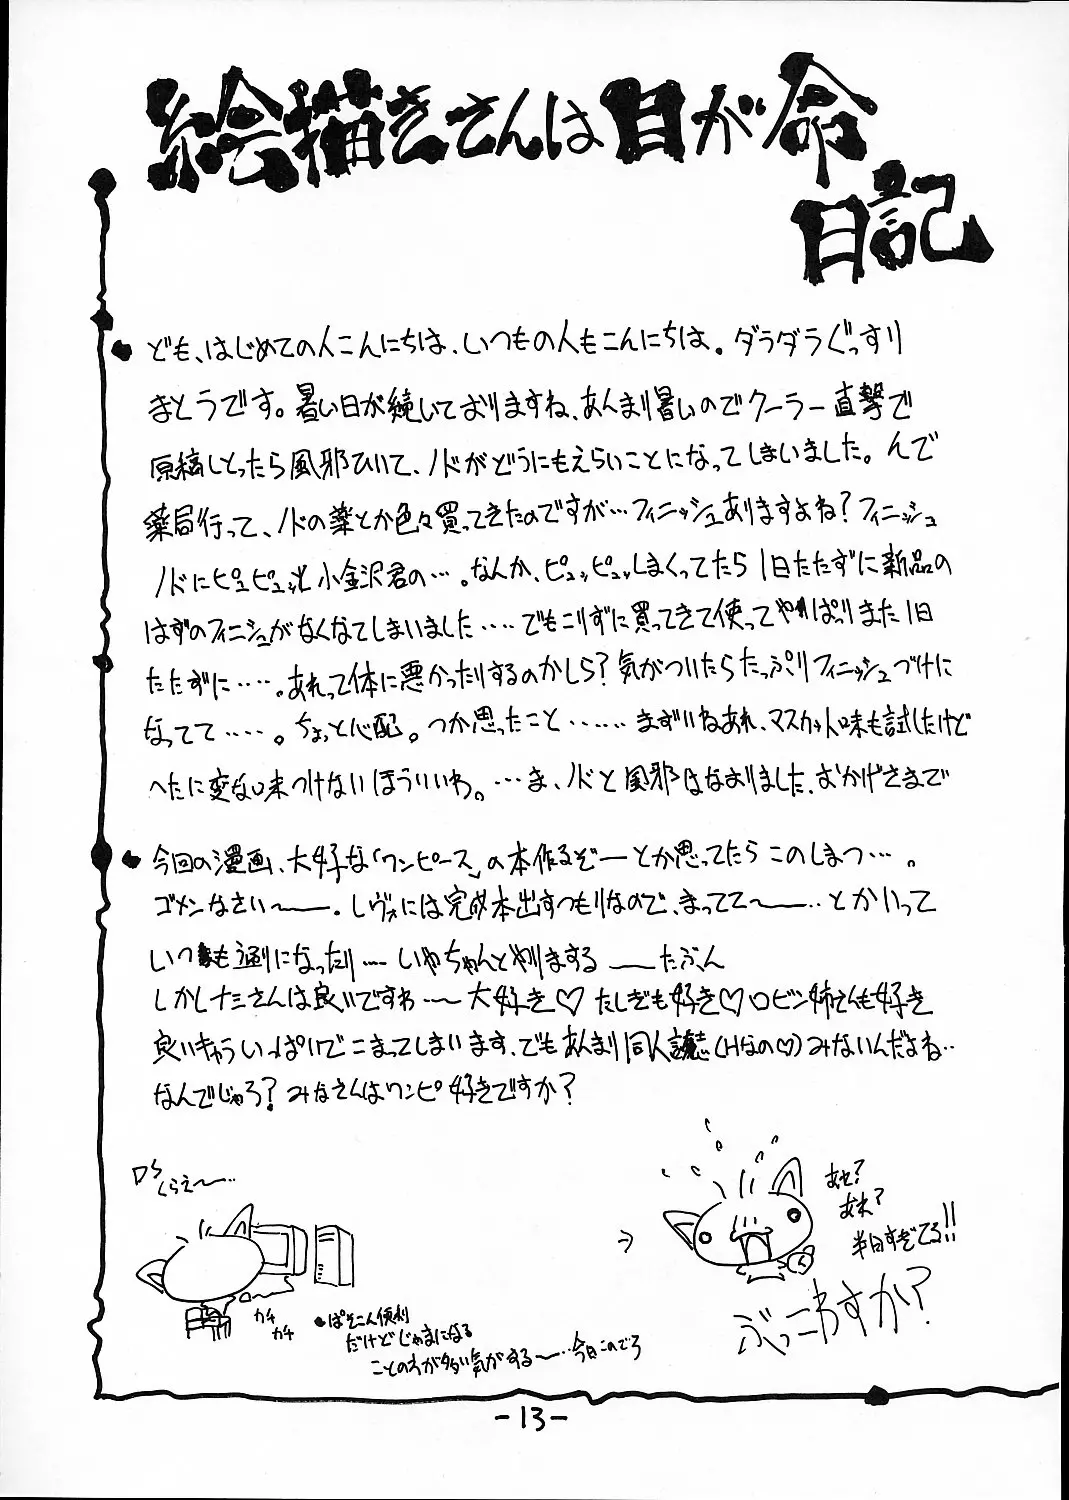 絵描きさんは目が命
日記
ども、はじめての人こんにちは、いつもの人もこんにちは。ダラダラぐっすり
まとうです。暑い日が続いておりますね、あんまり暑いのでクーラー直撃で
原稿しとったら風邪ひいて、ノドがどうにもえらいことになってしまいました。んで
薬局行って、ノドの薬とか色々買ってきたのですが…フィニッシュありますよね?フィニッシュ
ノドにピュピュッと小金沢君の…。なんか、ピュッピュッしまくってたら1日たたずに新品の
はずのフィニシュがなくなてしまいました‥‥でもこりずに買ってきて使ってやっぱりまた1日
たたずに‥‥。あれって体に悪かったりするのかしら?気がついたらたっぷりフィニッシュづけに
なってて‥‥。ちょっと心配。つか思ったこと‥‥‥まずいねあれ、マスカット味も試したけど
へたに変な味つけないほういいわ。…ま、ノドと風邪はなおりました、おかげさまで
今回の漫画、大好な「ワンピース」の本作るぞーとか思ってたらこのしまつ…。
ゴメンなさい〜ー。レヴォには完成本出すつもりなので、まってて〜ー‥とかいって
いつも通りになったり…いやちゃんとやりまする ーたぶん
しかしナミさんは良いですわ〜大好き♡たしぎも好き♡ロビン姉さんも好き
良いキャラいっぱいでこまってしまいます、でもあんまり同人誌(Hなの♡)みないんだよね‥
なんでじゃろ?みなさんはワンピ好きですか?
くらえ〜‥
カチ
カチ
ぱそこん便利
だけどじゃまになる
ことの方が多い気がする〜‥今日このごろ
→
あせ?
あれ?
半日すぎてる!!
ぶっこわすか?
-13-